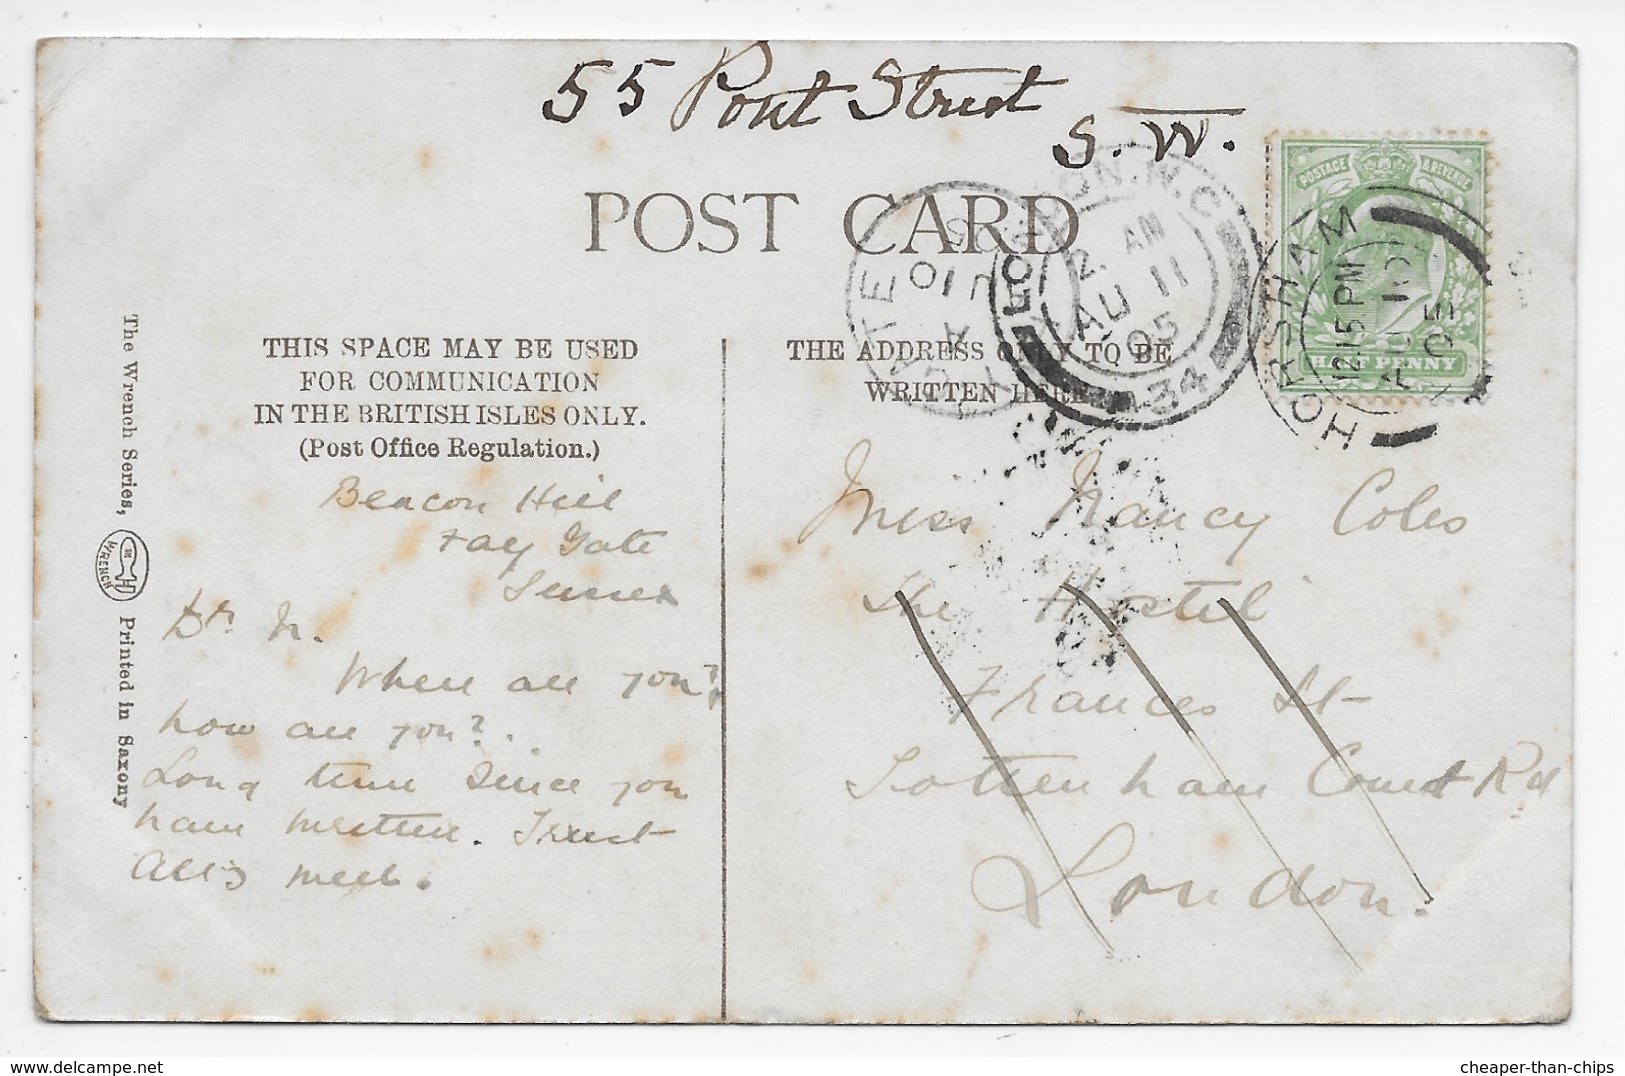 55 Pont Street
S. W.
POST CARD
POSTAGE & REVENUE
HALF PENNY
HORSHAM
12.15 PM
AU 10
05
LONDON. W.C
2. AM
AU 11
05
34
GATE
A
AU 10
05
THIS SPACE MAY BE USED
FOR COMMUNICATION
IN THE BRITISH ISLES ONLY.
(Post Office Regulation.)
THE ADDRESS ONLY TO BE
WRITTEN HERE
The Wrench Series,
WRENCH
Printed in Saxony
Beacon Hill
Fay Gate
Sussex
Dr. N.
Where are you?
how are you?
Long time since you
have written. Trust
All's well.
Miss Nancy Coles
The Hostel
Frances St
Tottenham Court Rd
London.
cheaper-than-chips